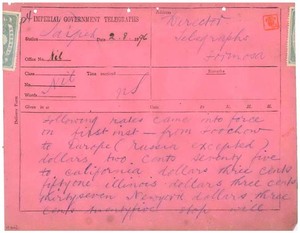 IMPERIAL GOVERNMENT TELEGRAPHS
Director
Taipeh
Telegraphs
Station
Date
Formosa
Office No.
Nil
Class
Time received
Remarks
Nil
Words
Given at
Following rates came into force
on first inst - from Foochow
to Europe (Russia excepted)
dollars, two cents seventy five
to California dollars three cents
fiftyone illinois dollars three cents
thirtyseven Newyork dollars three
cents twentyfive stop will